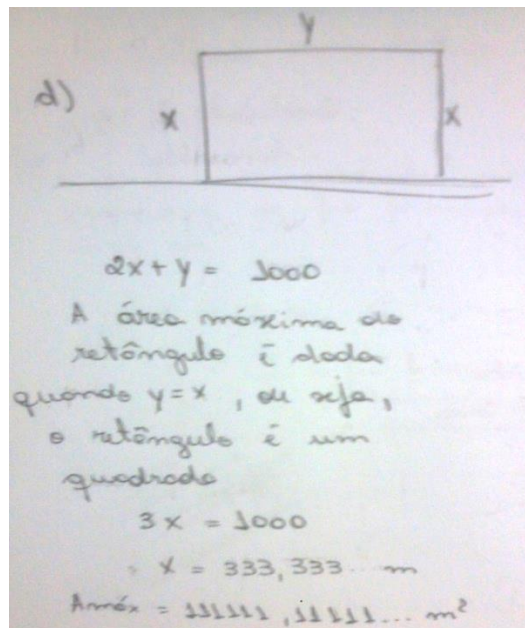 y
d)
x x
2x + y = 1000
A área máxima do
retângulo é dada
quando y = x, ou seja,
o retângulo é um
quadrado
3x = 1000
x = 333,333... m
Amáx = 111111,11111... m²